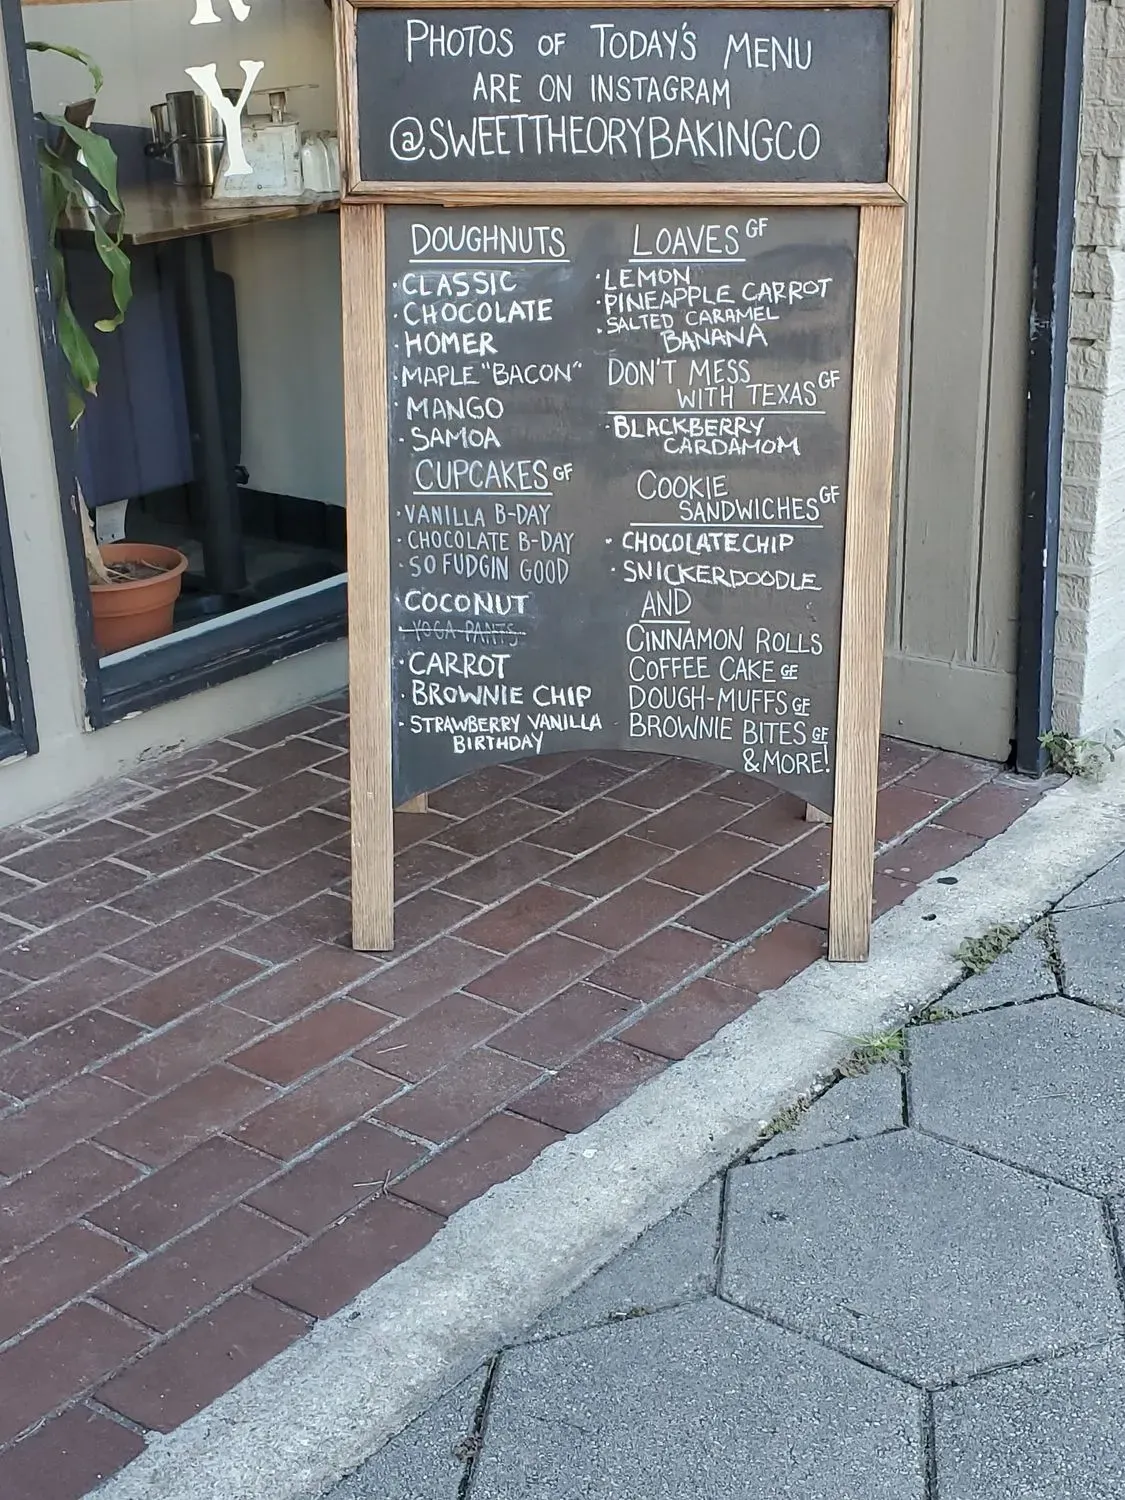 R
Y
PHOTOS OF TODAY'S MENU
ARE ON INSTAGRAM
@SWEETTHEORYBAKINGCO
DOUGHNUTS
· CLASSIC
· CHOCOLATE
· HOMER
· MAPLE "BACON"
· MANGO
· SAMOA
CUPCAKES GF
· VANILLA B-DAY
· CHOCOLATE B-DAY
· SO FUDGIN GOOD
· COCONUT
· YOGA PANTS
· CARROT
· BROWNIE CHIP
· STRAWBERRY VANILLA
BIRTHDAY
LOAVES GF
· LEMON
· PINEAPPLE CARROT
· SALTED CARAMEL
BANANA
DON'T MESS
WITH TEXAS GF
· BLACKBERRY
CARDAMOM
COOKIE
SANDWICHES GF
· CHOCOLATE CHIP
· SNICKERDOODLE
AND
CINNAMON ROLLS
COFFEE CAKE GF
DOUGH-MUFFS GF
BROWNIE BITES GF
& MORE!